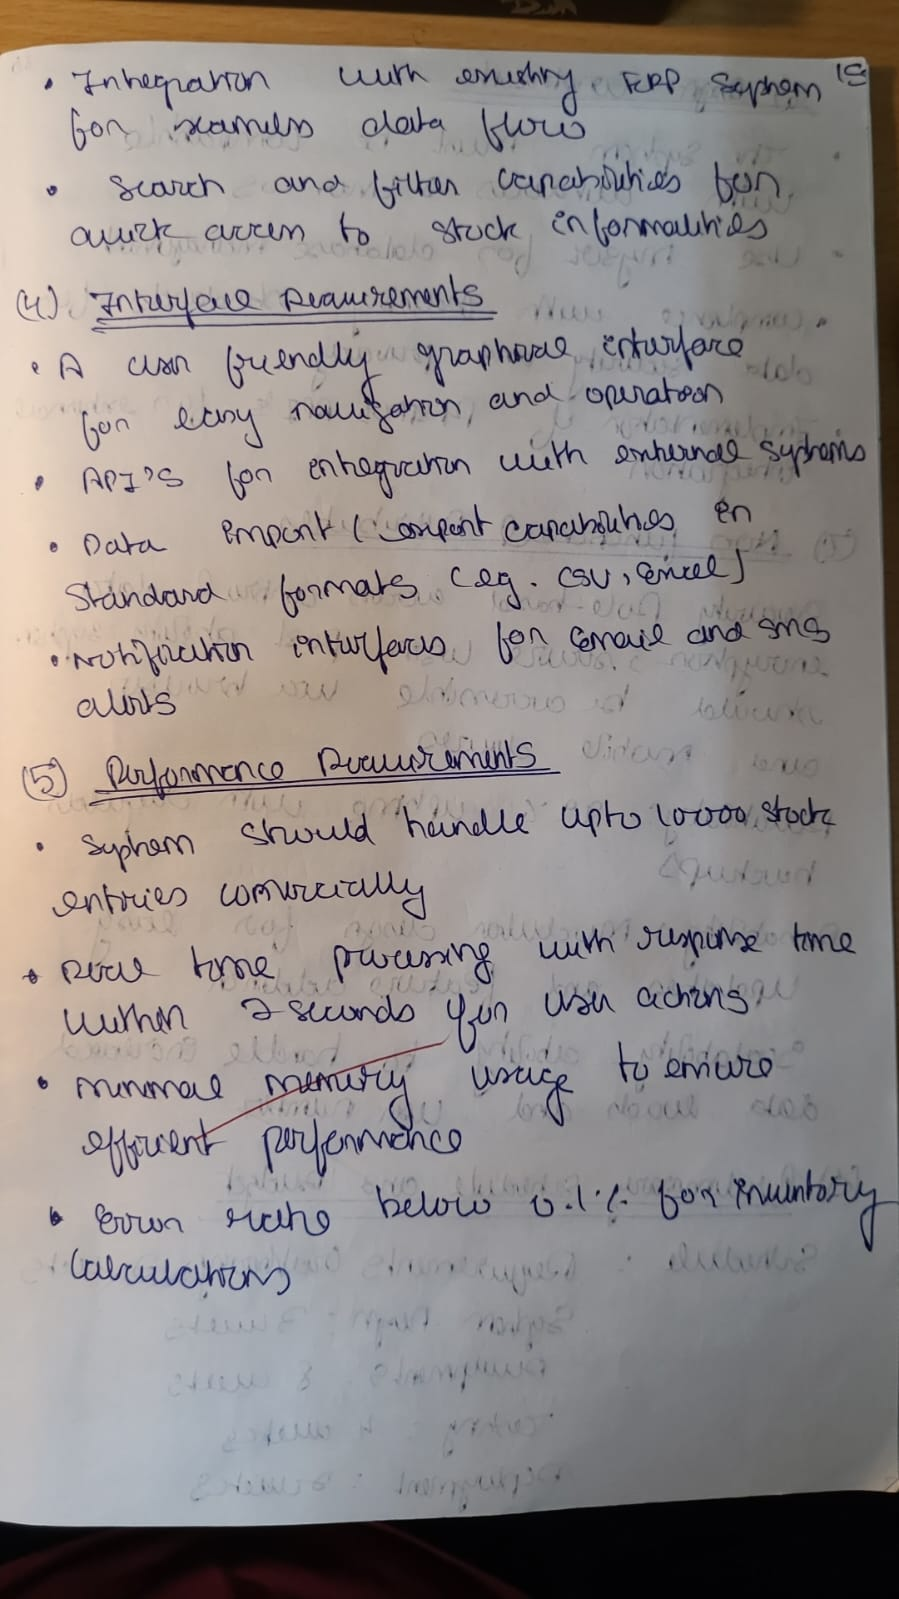 • Integration with existing ERP System
for seamless data flow
• Search and filter capabilities for
quick access to stock informalities
(4) Interface Requirements
• A user friendly graphical interface
for easy navigation and operation
• API's for integration with external systems
• Data import / export capabilities in
standard formats (eg. CSV, Excel)
• Notification interfaces for email and SMS
alerts
(5) Performance Requirements
• System should handle upto 10000 stock
entries
• Real time processing with response time
within 2 seconds for user actions
• Minimal memory usage to ensure
efficient performance
• Error rate below 0.1% for inventory
calculations